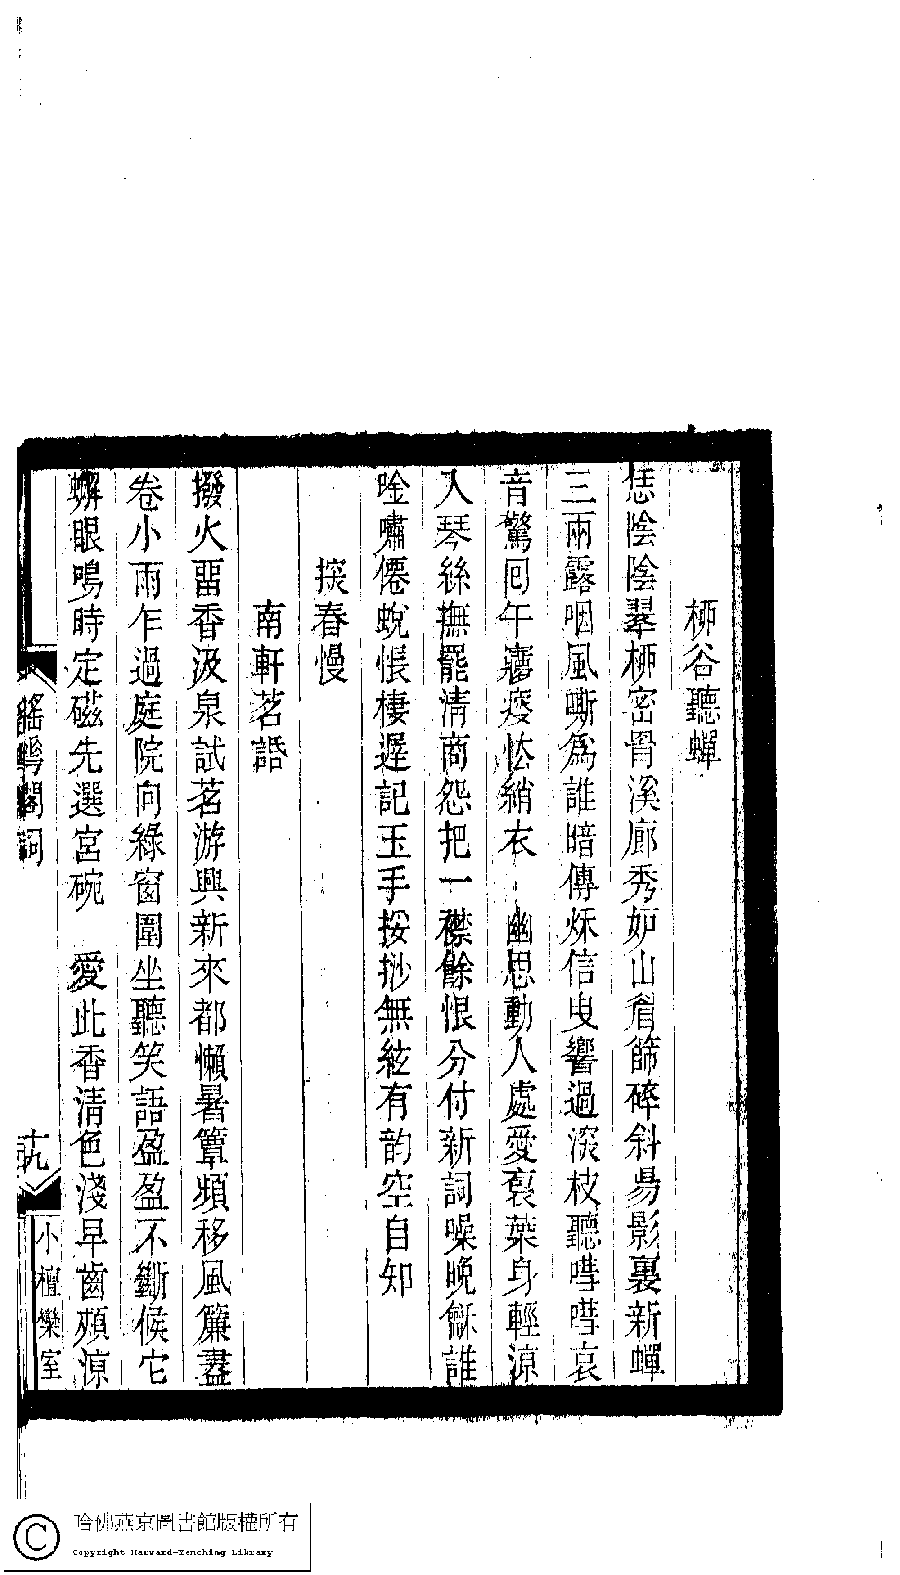 柳谷聽蟬
恁陰陰翠柳密骨溪廊秀妒山眉篩碎斜昜影裏新蟬
三兩露咽風嘶為誰暗傳烁信曳響過深枝聽嘒嘒哀
音驚回午寤疲怯綃衣 幽思動人處愛裛葉身輕涼
入琴絲撫罷清商怨把一襟餘恨分付新詞噪晚龢誰
唫嘯僊蛻悵棲遲記玉手挼挱無絃有韵空自知
探春慢
南軒茗話
撥火畱香汲泉試茗游興新來都懶暑簟頻移風簾盡
卷小雨乍過庭院向綠窗圍坐聽笑語盈盈不斷候它
蠏眼鳴時定磁先選宮碗 愛此香清色淺早齒頰涼
瑤㻌閣詞
十九
小檀欒室
哈佛燕京圖書館版權所有
Copyright Harvard-Yenching Library